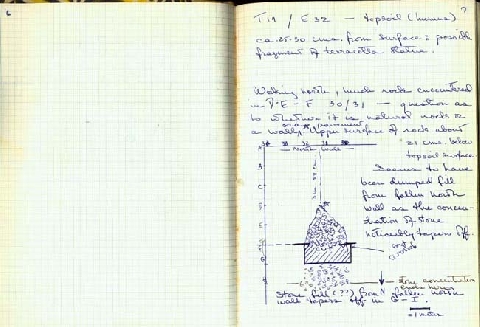 6
7
T19 / E 32 — topsoil (humus)
ca. 25-30 cms. from surface: possible
fragment of terracotta statue.
Walking north, much rock encountered
in E 30/31 — question as
to whether it is natural rock or
or a pavement
a wall. Upper surface of rock about
cms. below
topsoil surface.
North
Seems to have
been dumped fill
from fallen north
wall as the concen-
tration of stone
noticeably tapers off.
stone concentration
Stone fill (?) from fallen north
wall tapers off in G-I.